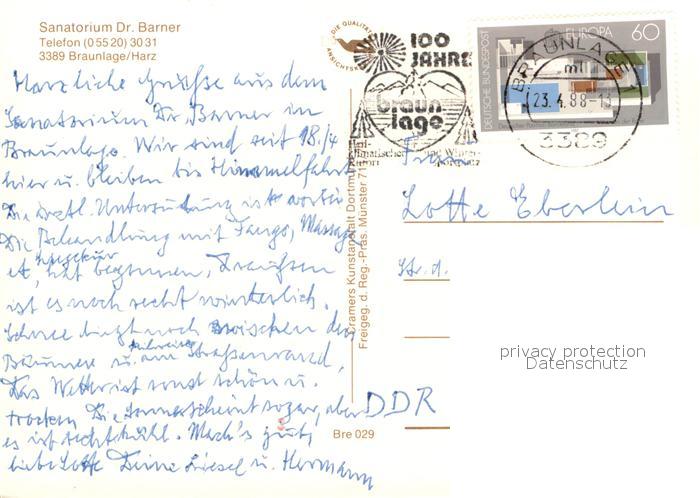 Sanatorium Dr. Barner
Telefon (0 55 20) 30 31
3389 Braunlage/Harz
Herzliche Grüße aus dem
Sanatorium Dr. Barner in
Braunlage. Wir sind seit 18./4
hier u. bleiben bis Himmelfahrt
Die ärztl. Untersuchung ist vorbei
Die Behandlung mit Fango, Massage
hat begonnen, Draußen
ist es noch recht winterlich.
Schnee liegt noch zwischen den
Bäumen u. am Straßenrand,
Das Wetter ist sonst schön u.
trocken Die Sonne scheint sogar, aber
es ist recht kühl. Mach's gut,
liebe Lotte Deine Liesel u. Hermann
DIE QUALITÄTS
ANSICHTSK
100
JAHRE
braun
lage
heilklimatischer
Kurort
und Winter-
sportplatz
DEUTSCHE BUNDESPOST
EUROPA
60
BRAUNLAGE 1
ml
23.4.88-13
3389
Frau
Lotte Eberlein
Str. d.
DDR
Cramers Kunstanstalt Dortmund
Freigeg. d. Reg.-Präs. Münster 71
Bre 029
privacy protection
Datenschutz